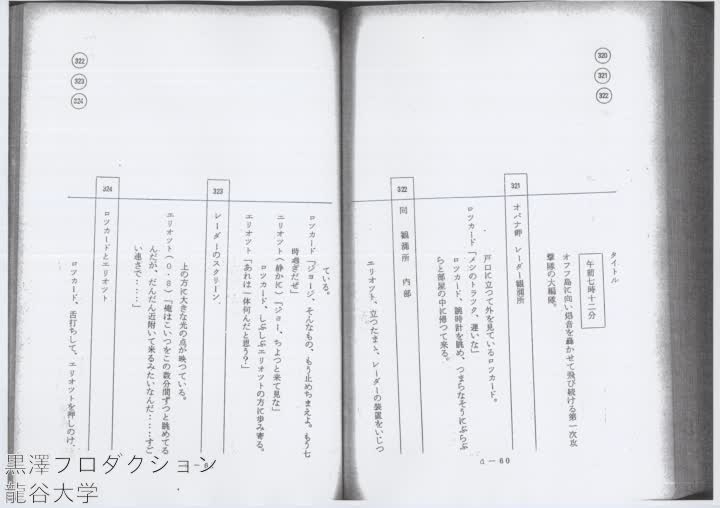 320
321
322
タイトル
午前七時十二分
オアフ島に向い爆音を轟かせて飛び続ける第一次攻
撃隊の大編隊。
321
オパナ岬 レーダー観測所
戸口に立つて外を見ているロツカード。
ロツカード「メシのトラツク、遅いな」
ロツカード、腕時計を眺め、つまらなそうにぶらぶ
らと部屋の中に帰つて来る。
322
同 観測所 内部
エリオツト、立つたまゝ、レーダーの装置をいじつ
d－60
322
323
324
ている。
ロツカード「ジョージ、そんなもの、もう止めちまえよ。もう七
時過ぎだぜ」
エリオツト（静かに）「ジョー、ちよつと来て見な」
ロツカード、しぶしぶエリオツトの方に歩み寄る。
エリオツト「あれは一体何んだと思う？」
323
レーダーのスクリーン
上の方に大きな光の点が映つている。
エリオツト（O・S）「俺はこいつをこの数分間ずつと眺めてる
んだが、だんだん近附いて来るみたいなんだ……すご
い速さで……」
324
ロツカードとエリオツト
ロツカード、舌打ちして、エリオツトを押しのけ、
黒澤プロダクション
龍谷大学